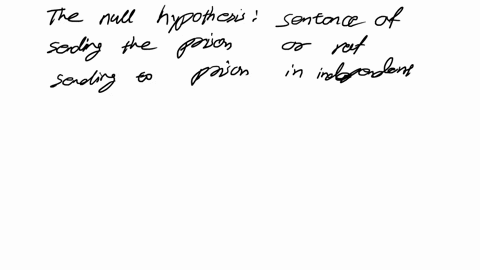 The null hypothesis: sentence of
sending the prison or not
sending to prison in independent